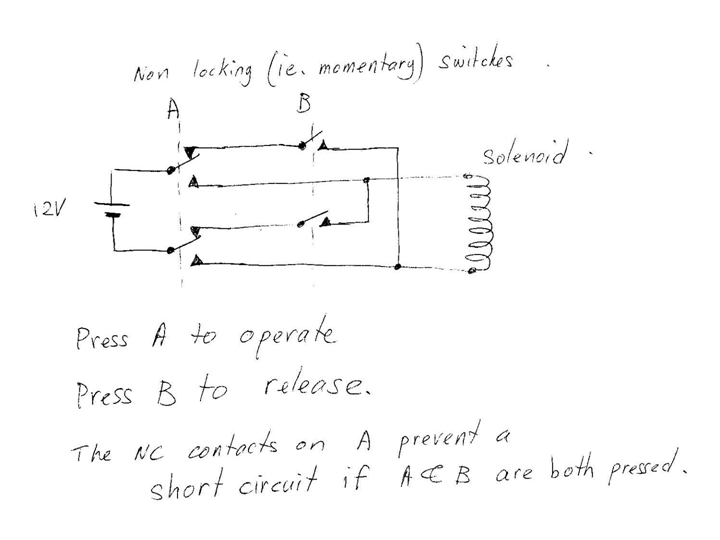 Non locking (ie. momentary) switches.
A B
Solenoid.
12V
Press A to operate
Press B to release.
The NC contacts on A prevent a
short circuit if A & B are both pressed.